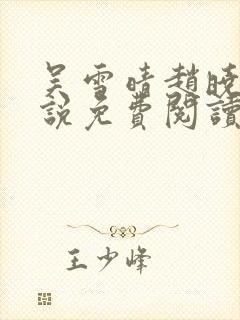 吴雪晴趙曉
說免費閱讀
王少峰